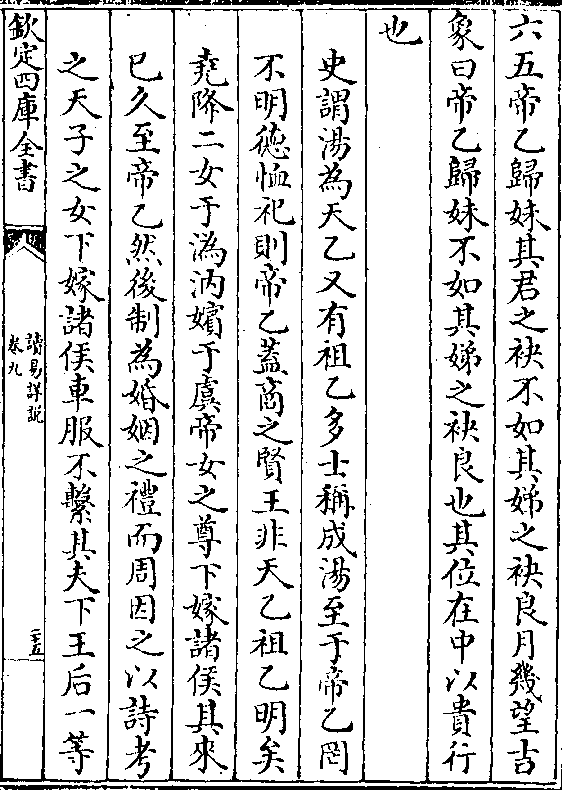 六五帝乙歸妹其君之袂不如其娣之袂良月幾望吉
象曰帝乙歸妹不如其娣之袂良也其位在中以貴行
也
史謂湯為天乙又有祖乙多士稱成湯至于帝乙罔
不明徳恤祀則帝乙蓋商之賢王非天乙祖乙明矣
堯降二女于溈汭嬪于虞帝女之尊下嫁諸侯其來
已久至帝乙然後制為婚姻之禮而周因之以詩考
之天子之女下嫁諸侯車服不繫其夫下王后一等
欽定四庫全書
讀易詳說
卷九
二十五